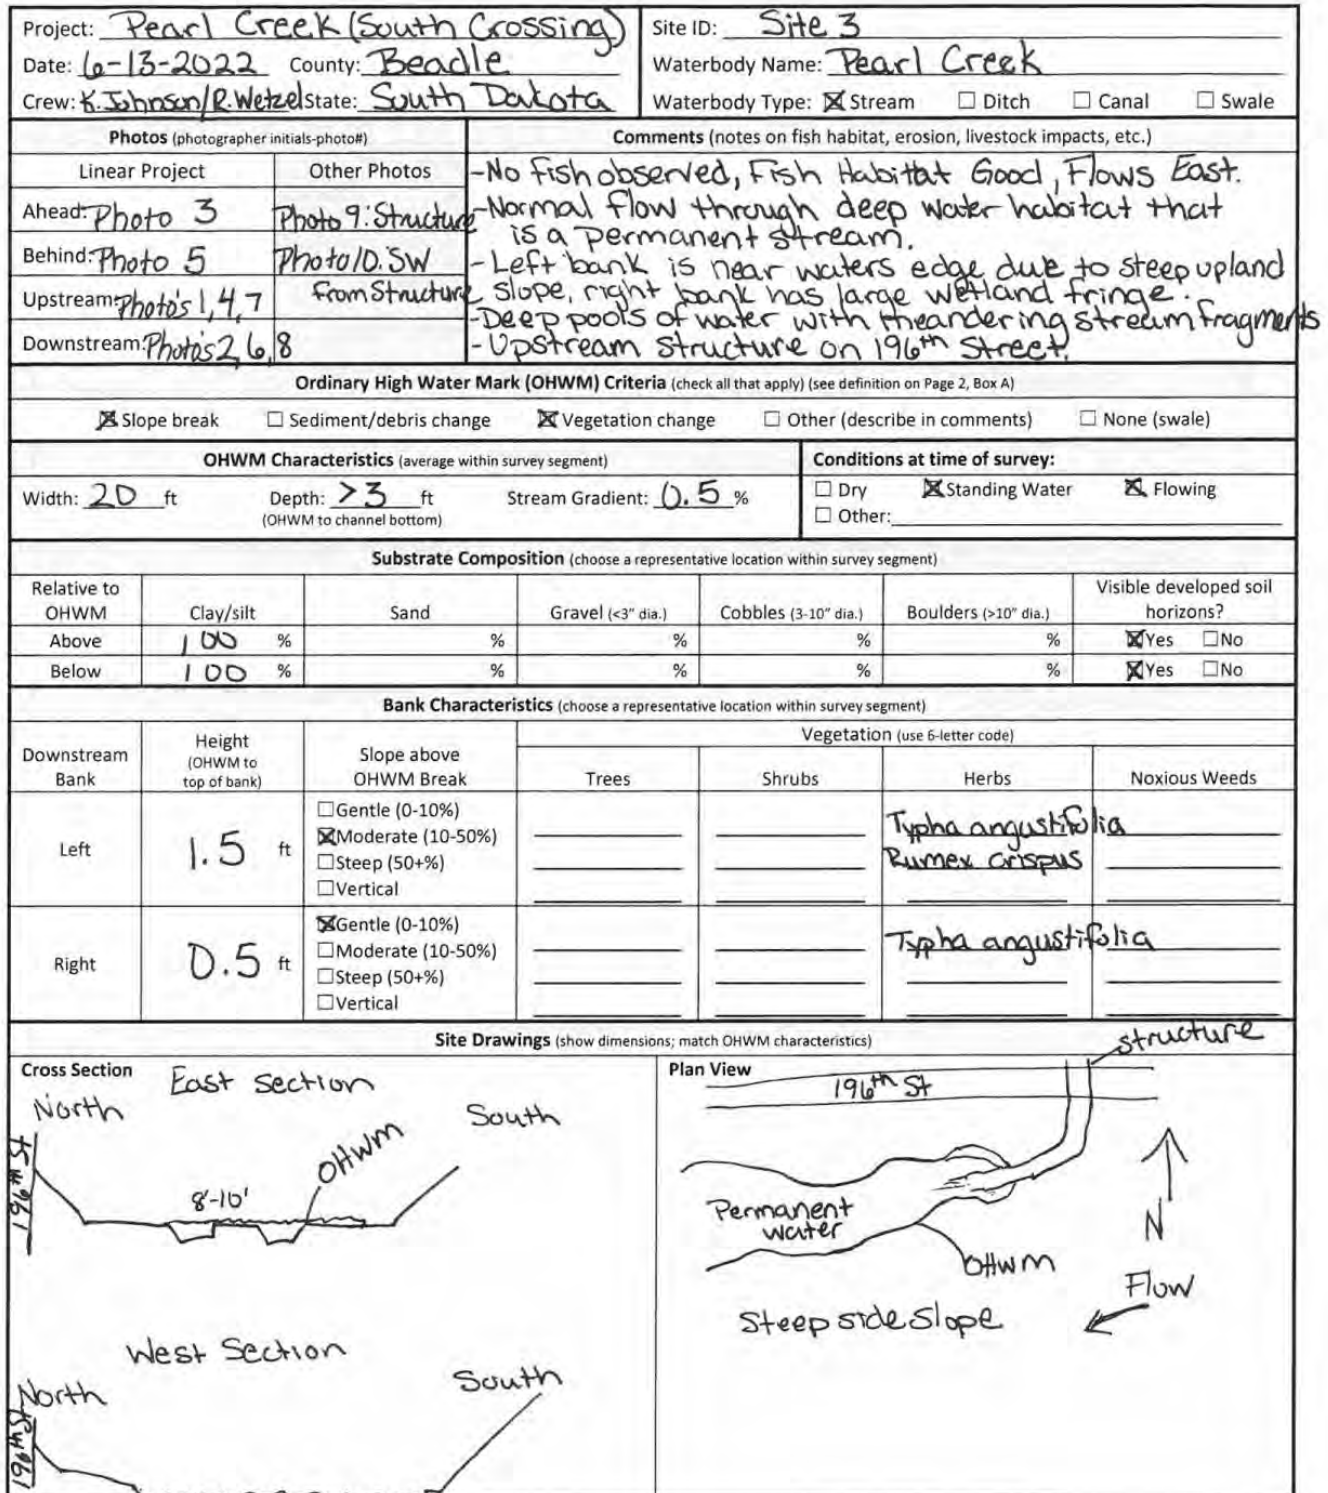 Project: Pearl Creek (South Crossing)
Site ID: Site 3
Date: 6-13-2022 County: Beadle
Waterbody Name: Pearl Creek
Crew: K. Johnson/R. Wetzel State: South Dakota
Waterbody Type: ☒ Stream ☐ Ditch ☐ Canal ☐ Swale
Photos (photographer initials-photo#)
Linear Project Other Photos
Ahead: Photo 3 Photo 9: Structure
Behind: Photo 5 Photo 10. SW
Upstream: Photo's 1, 4, 7 from Structure
Downstream: Photo's 2, 6, 8
Comments (notes on fish habitat, erosion, livestock impacts, etc.)
-No fish observed, Fish Habittat Good, Flows East.
-Normal flow through deep water habitat that
is a permanent stream.
-Left bank is near waters edge due to steep upland
slope, right bank has large wetland fringe.
-Deep pools of water with meandering stream fragments
-Upstream structure on 196th Street.
Ordinary High Water Mark (OHWM) Criteria (check all that apply) (see definition on Page 2, Box A)
☒ Slope break ☐ Sediment/debris change ☒ Vegetation change ☐ Other (describe in comments) ☐ None (swale)
OHWM Characteristics (average within survey segment)
Width: 20 ft Depth: >3 ft Stream Gradient: 0.5 %
(OHWM to channel bottom)
Conditions at time of survey:
☐ Dry ☒ Standing Water ☒ Flowing
☐ Other:
Substrate Composition (choose a representative location within survey segment)
Relative to OHWM Clay/silt Sand Gravel (<3" dia.) Cobbles (3-10" dia.) Boulders (>10" dia.) Visible developed soil horizons?
Above 100 % % % % % ☒ Yes ☐ No
Below 100 % % % % % ☒ Yes ☐ No
Bank Characteristics (choose a representative location within survey segment)
Downstream Bank Height (OHWM to top of bank) Slope above OHWM Break Vegetation (use 6-letter code)
Trees Shrubs Herbs Noxious Weeds
Left 1.5 ft
☐ Gentle (0-10%)
☒ Moderate (10-50%)
☐ Steep (50+%)
☐ Vertical
Typha angustifolia
Rumex crispus
Right 0.5 ft
☒ Gentle (0-10%)
☐ Moderate (10-50%)
☐ Steep (50+%)
☐ Vertical
Typha angustifolia
Site Drawings (show dimensions; match OHWM characteristics)
Cross Section
East section
North
South
196th St
OHWM
8'-10'
West Section
North
South
196th St
Plan View
structure
196th St
Permanent
water
OHWM
N
Flow
Steep side slope